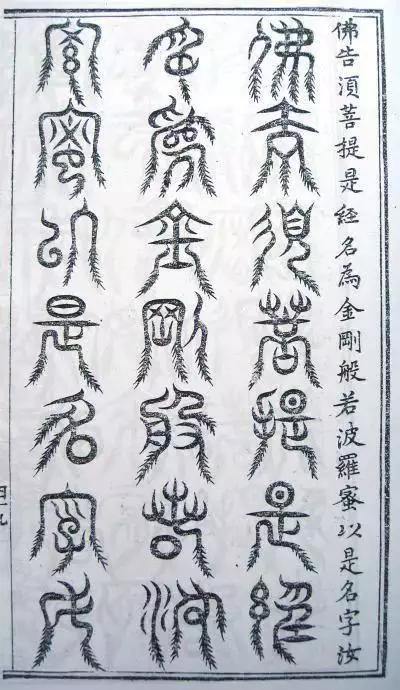 佛告湏菩提是經名為金剛般若波羅蜜以是名字汝
佛告須菩提是經
名為金剛般若波
羅蜜以是名字汝